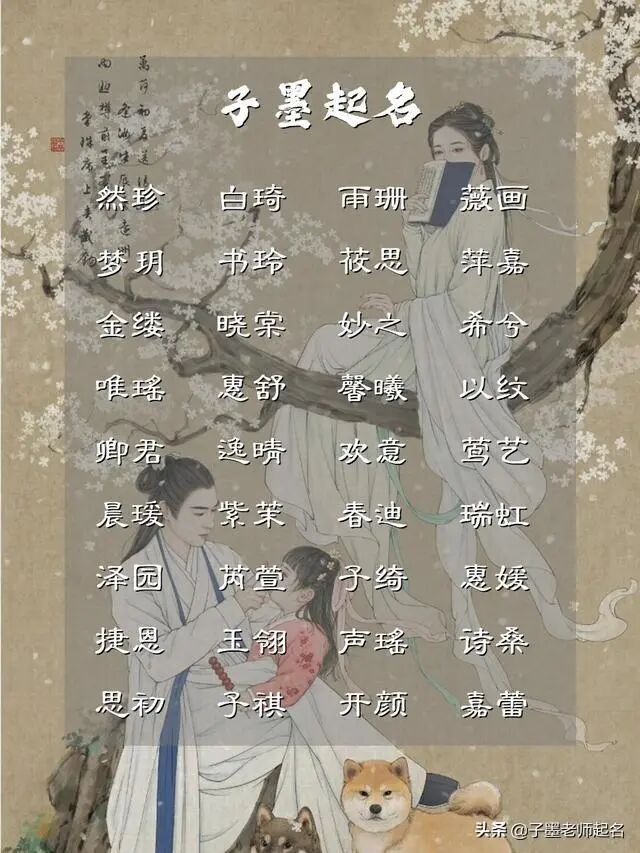 子墨起名
然珍 白琦 雨珊 薇画
梦玥 书玲 莜思 萍嘉
金缕 晓棠 妙之 希兮
唯瑶 惠舒 馨曦 以纹
卿君 逸晴 欢意 莺艺
晨瑗 紫茉 春迪 瑞虹
泽园 芮萱 子绮 惠媛
捷恩 玉翎 声瑶 诗桑
思初 子祺 开颜 嘉蕾
头条 @子墨老师起名